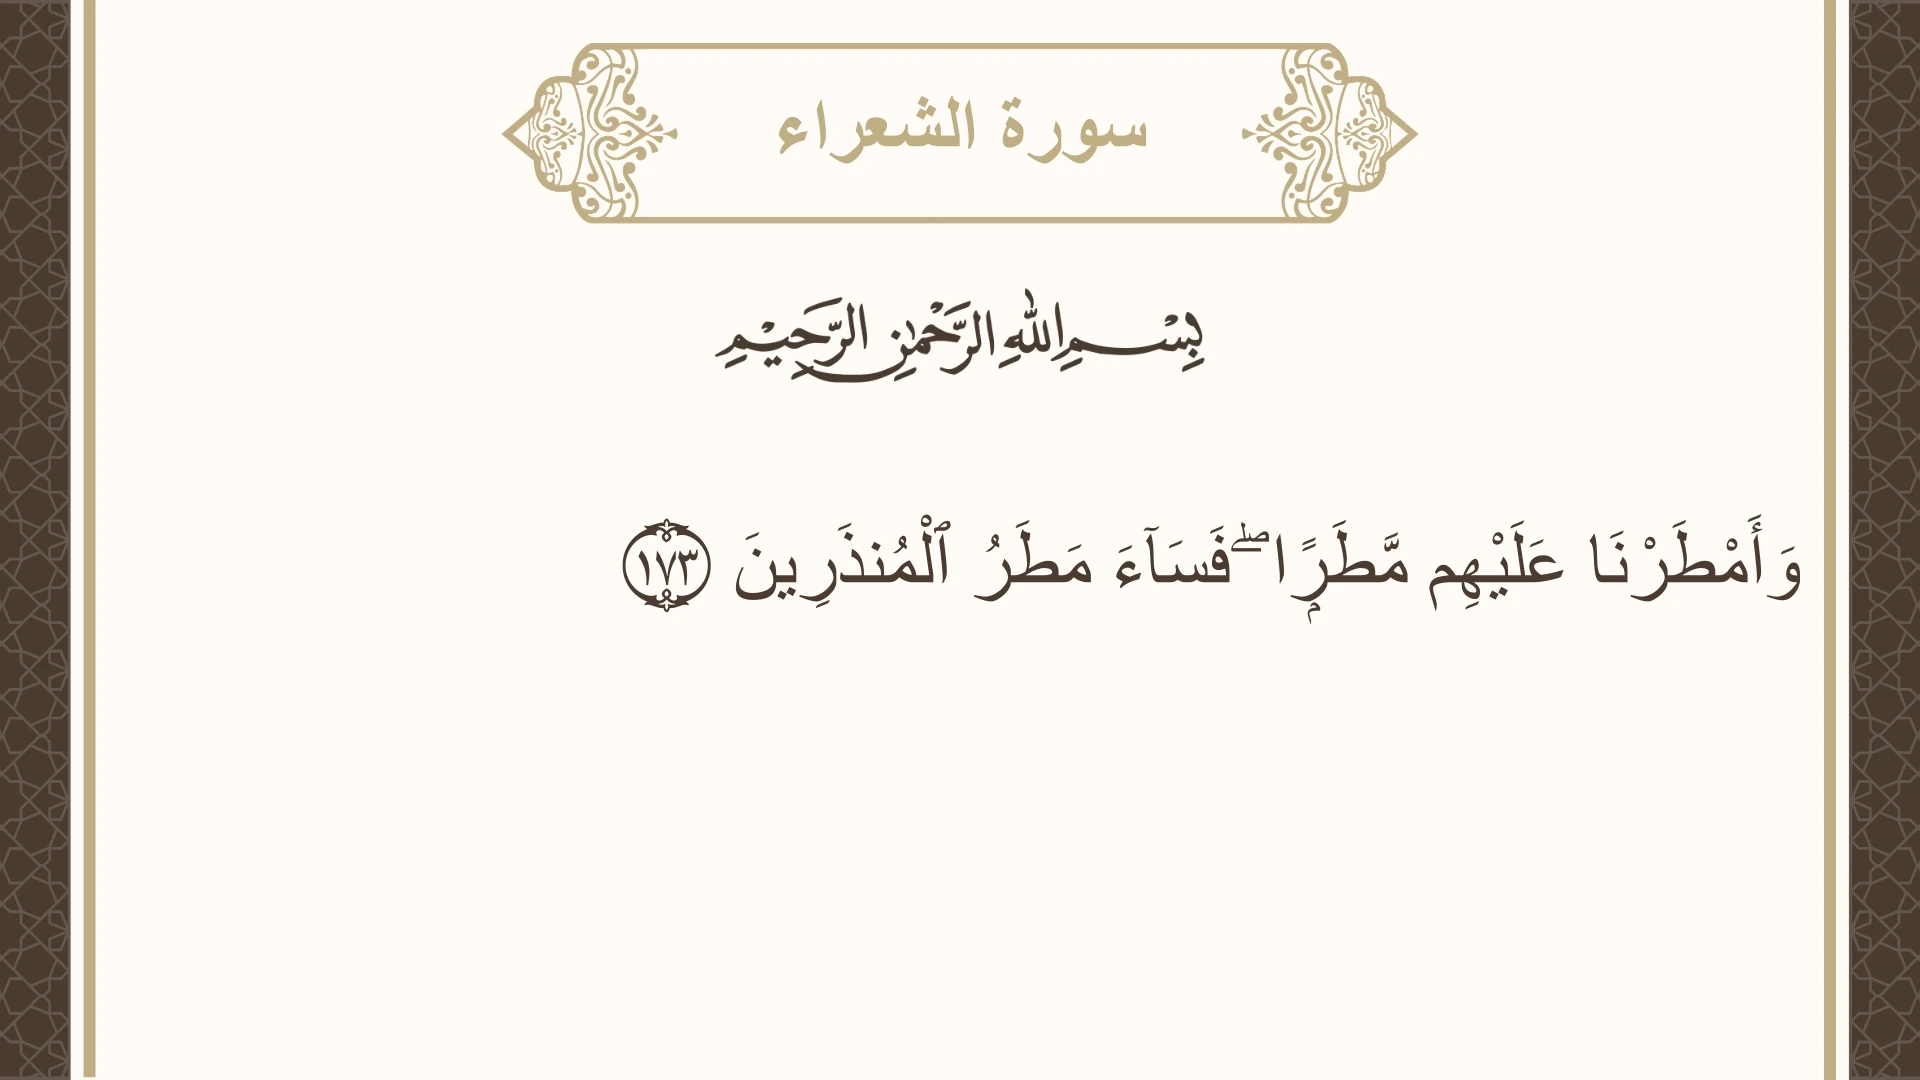 سورة الشعراء
بِسْمِ اللهِ الرَّحْمٰنِ الرَّحِيْمِ
وَأَمْطَرْنَا عَلَيْهِم مَّطَرًۭا ۖ فَسَآءَ مَطَرُ ٱلْمُنذَرِينَ ١٧٣